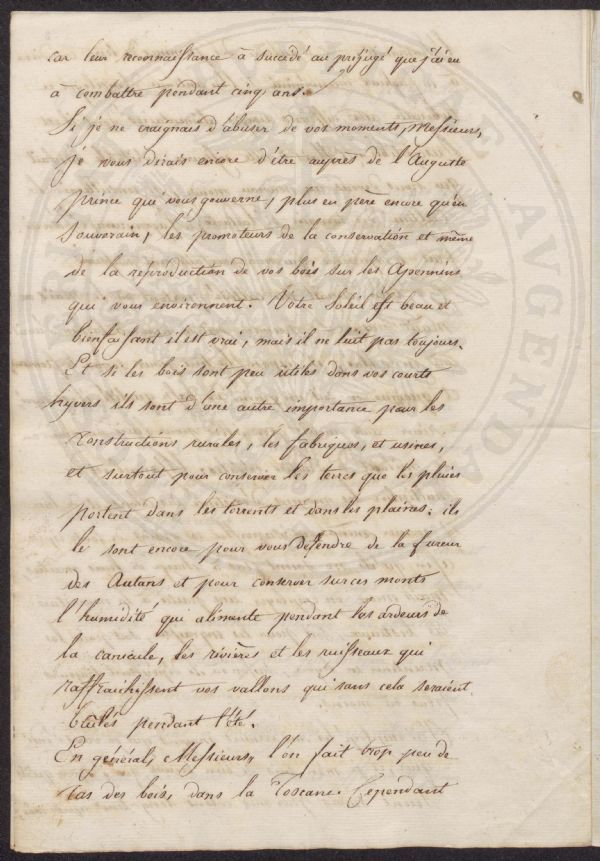 car leur reconnaissance à succédé au préjugé que j'ai eu
à combattre pendant cinq ans.
Si je ne craignais d'abuser de vos moments, Messieurs,
je vous dirais encore d'être auprès de l'Auguste
prince qui vous gouverne, plus en père encore qu'en
souverain, les promoteurs de la conservation et même
de la réproduction de vos bois sur les Apennins
qui vous environnent. Votre Soleil est beau et
bienfaisant il est vrai, mais il ne luit pas toujours.
Et si les bois sont peu utiles dans vos courts
hyvers ils sont d'une autre importance pour les
constructions rurales, les fabriques, et usines,
et surtout pour conserver les terres que les pluies
portent dans les torrents et dans les plaines; ils
le sont encore pour vous défendre de la fureur
des Autans et pour conserver sur ces monts
l'humidité qui alimente pendant les ardeurs de
la canicule, les rivières et les ruisseaux qui
raffraichissent vos vallons qui sans cela seraient
brulés pendant l'été.
En général, Messieurs, l'on fait trop peu de
cas des bois, dans la Toscane. Cependant